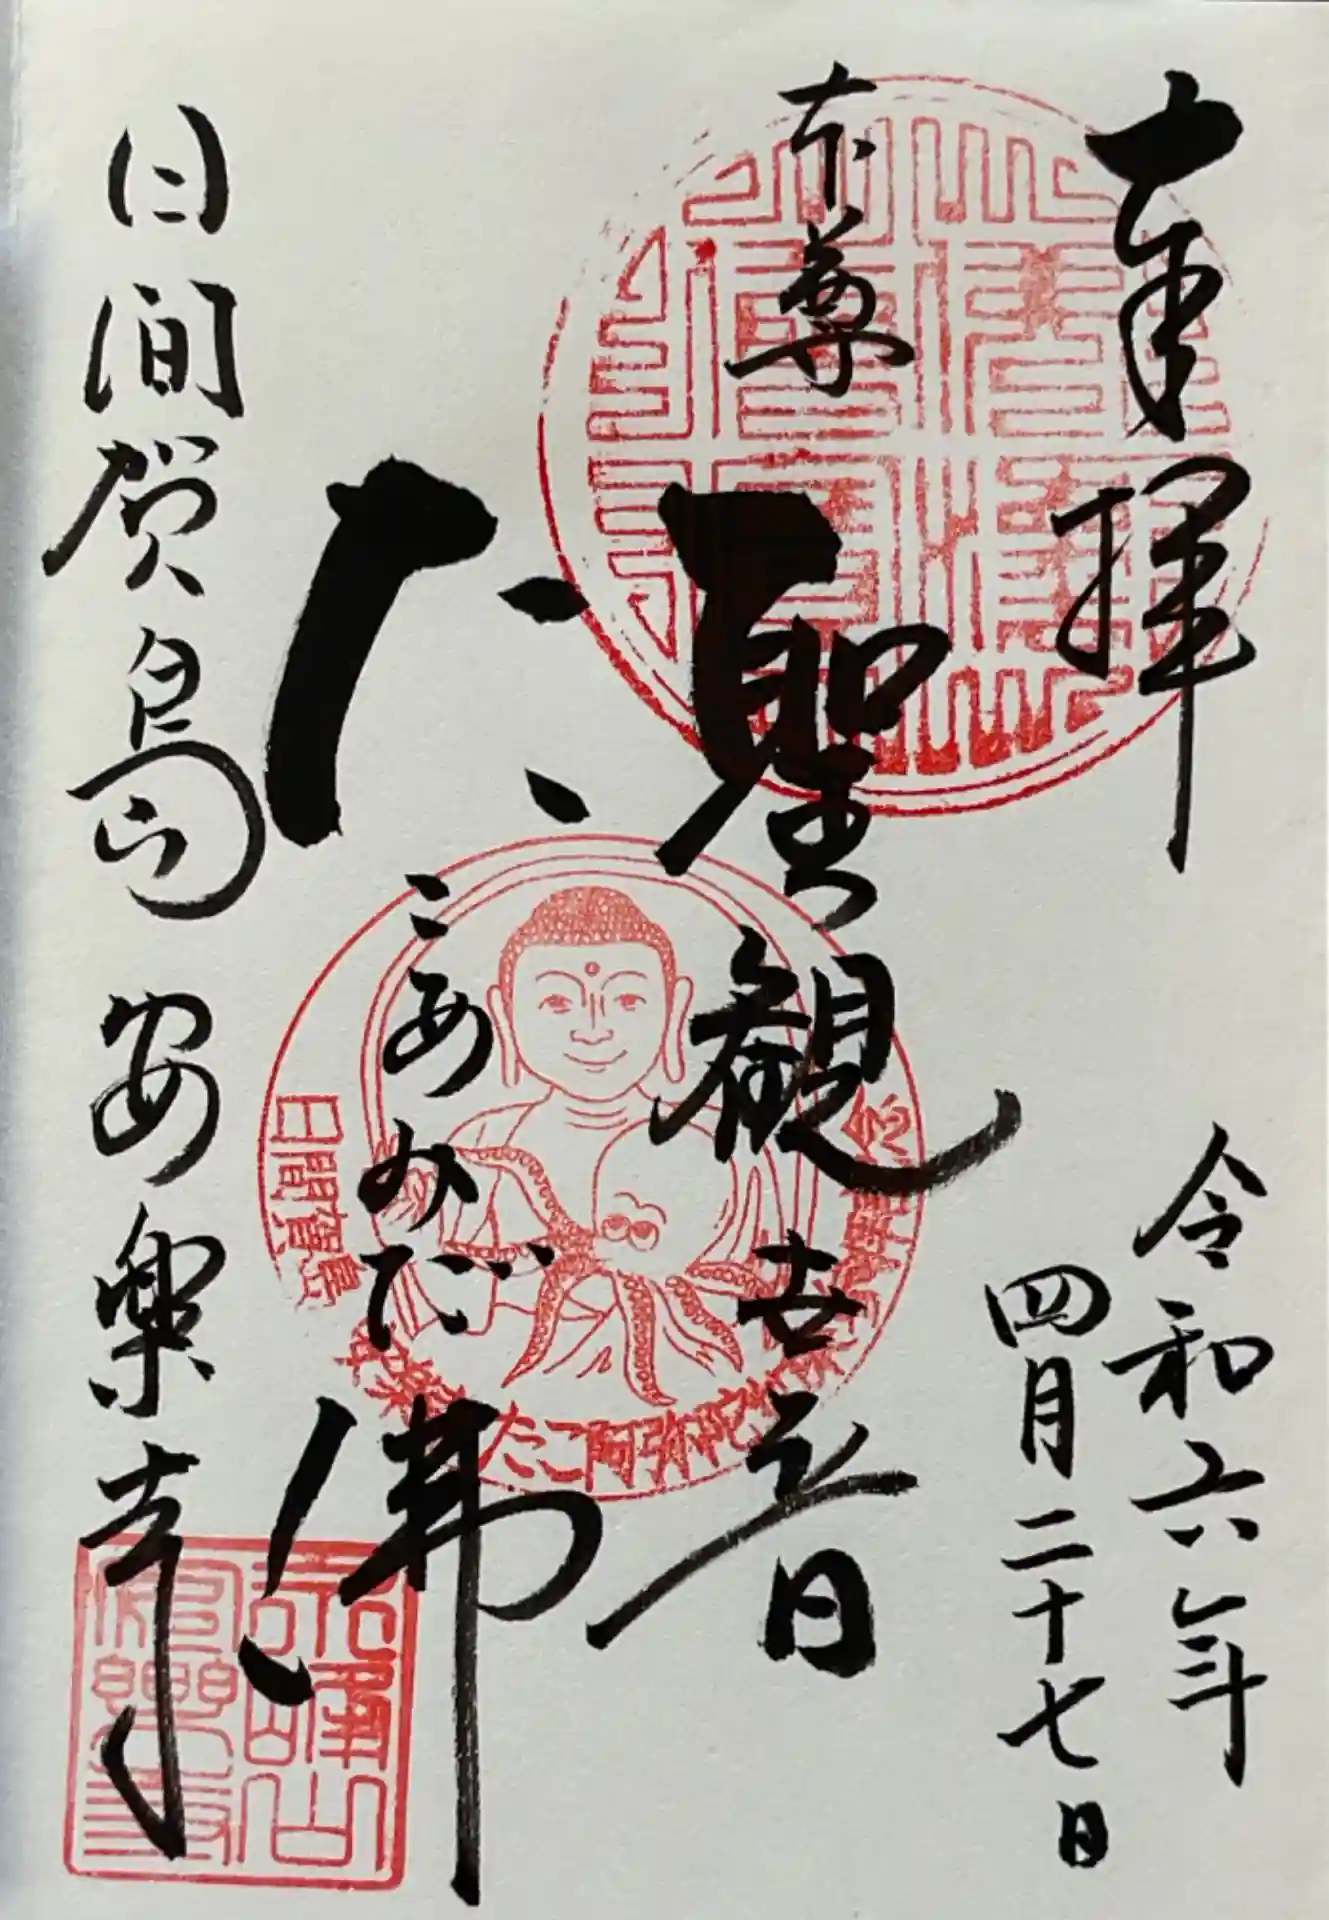 奉拝
令和六年
四月二十七日
本尊
聖観世音
たこあみだ佛
日間賀島 安楽寺
日間賀島
安楽寺
たこ阿弥陀